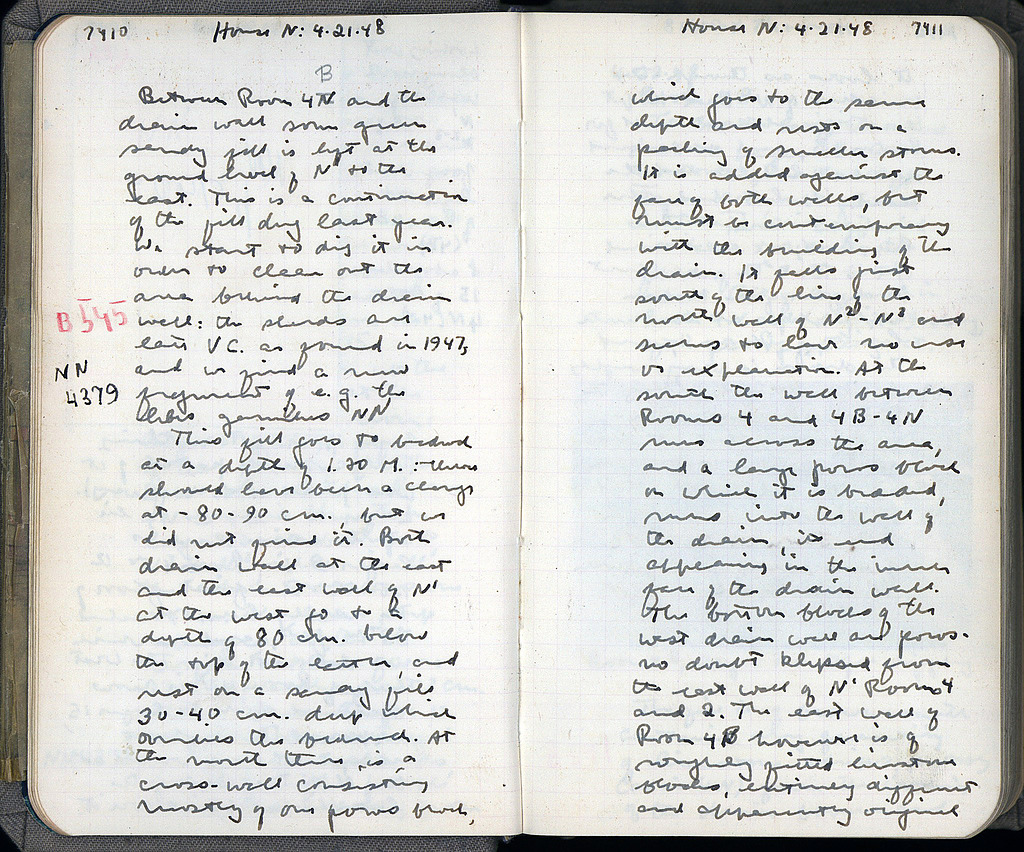 7410 House N: 4.21.48
B
Between Room 4N and the
drain wall some green
sandy fill is left at the
ground level of N to the
east. This is a continuation
of the fill dug last year.
We start to dig it in
order to clean out the
area behind the drain
B 545
wall: the sherds are
late V C. as found in 1947,
NN
4379
and we find a new
fragment of e.g. the
lebes gamikos NN
This fill goes to bedrock
at a depth of 1.20 M.: there
should have been a change
at -80-90 cm., but we
did not find it. Both
drain wall at the east
and the east wall of N'
at the west go to a
depth of 80 cm. below
the top of the latter, and
rest on a sandy fill
30-40 cm. deep which
overlies the bedrock. At
the north there is a
cross-wall consisting
mostly of one poros block,
House N: 4.21.48 7411
which goes to the same
depth and rests on a
packing of smaller stones.
It is added against the
face of both walls, but
must be contemporary
with the building of the
drain. It falls just
south of the line of the
north wall of N²-N³ and
seems to have no use
or explanation. At the
south the wall between
Rooms 4 and 4B-4N
runs across the area,
and a large poros block
on which it is bedded,
runs into the wall of
the drain, its end
appearing in the inner
face of the drain wall.
The bottom blocks of the
west drain wall are poros -
no doubt klepsed from
the east wall of N' Rooms 4
and 2. The east wall of
Room 4B however is of
roughly fitted limestone
blocks, entirely different
and apparently original